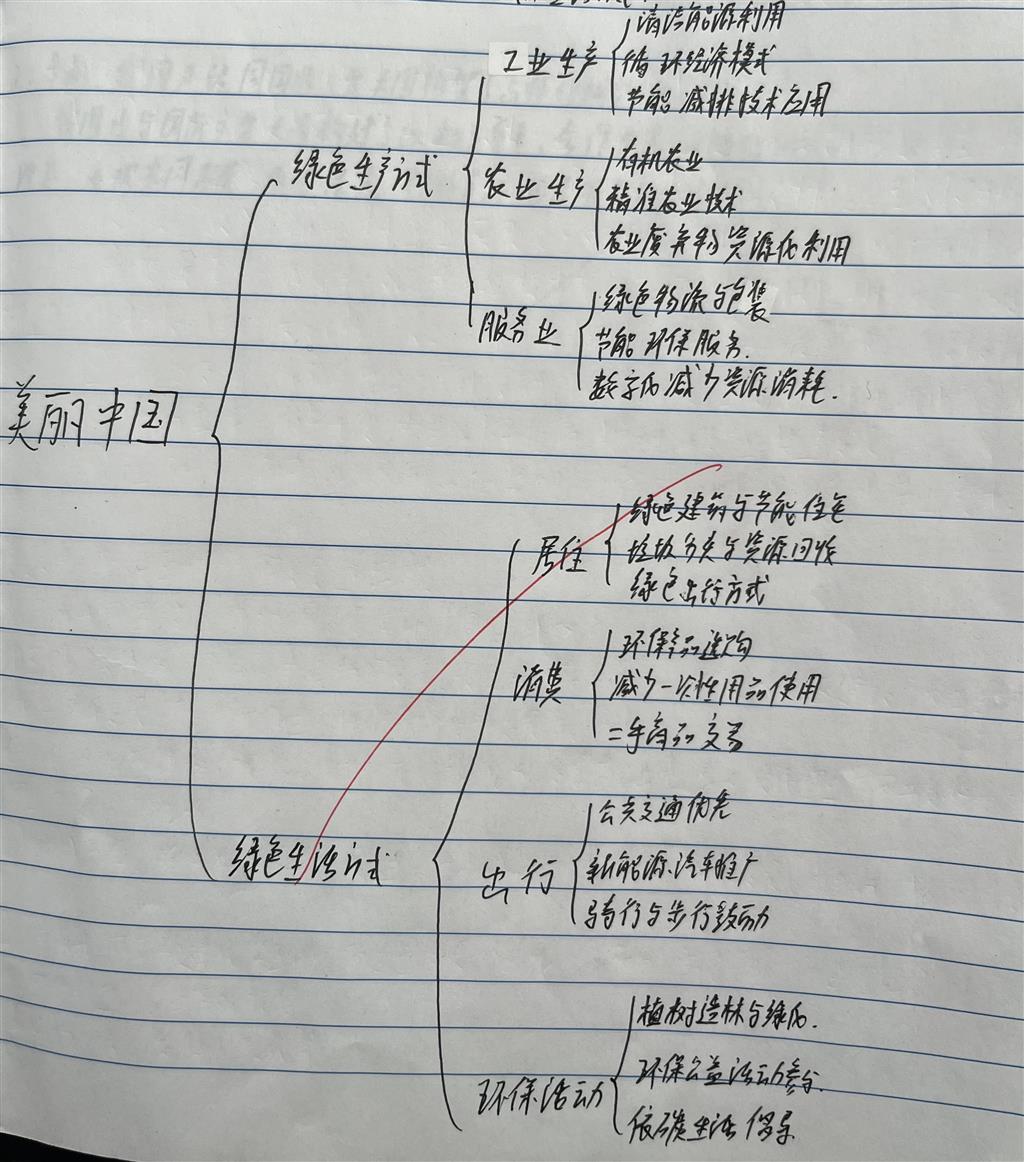 清洁能源利用
工业生产
循环经济模式
节能减排技术应用
绿色生产方式
有机农业
农业生产
精准农业技术
农业废弃物资源化利用
绿色物流与包装
服务业
节能环保服务.
数字化减少资源消耗.
美丽中国
绿色建筑与节能住宅
居住
垃圾分类与资源回收
绿色出行方式
环保产品选购
消费
减少一次性用品使用
二手商品交易
公共交通优先
绿色生活方式
出行
新能源汽车推广
骑行与步行鼓动
植树造林与绿化.
环保活动
环保公益活动参与.
低碳生活倡导